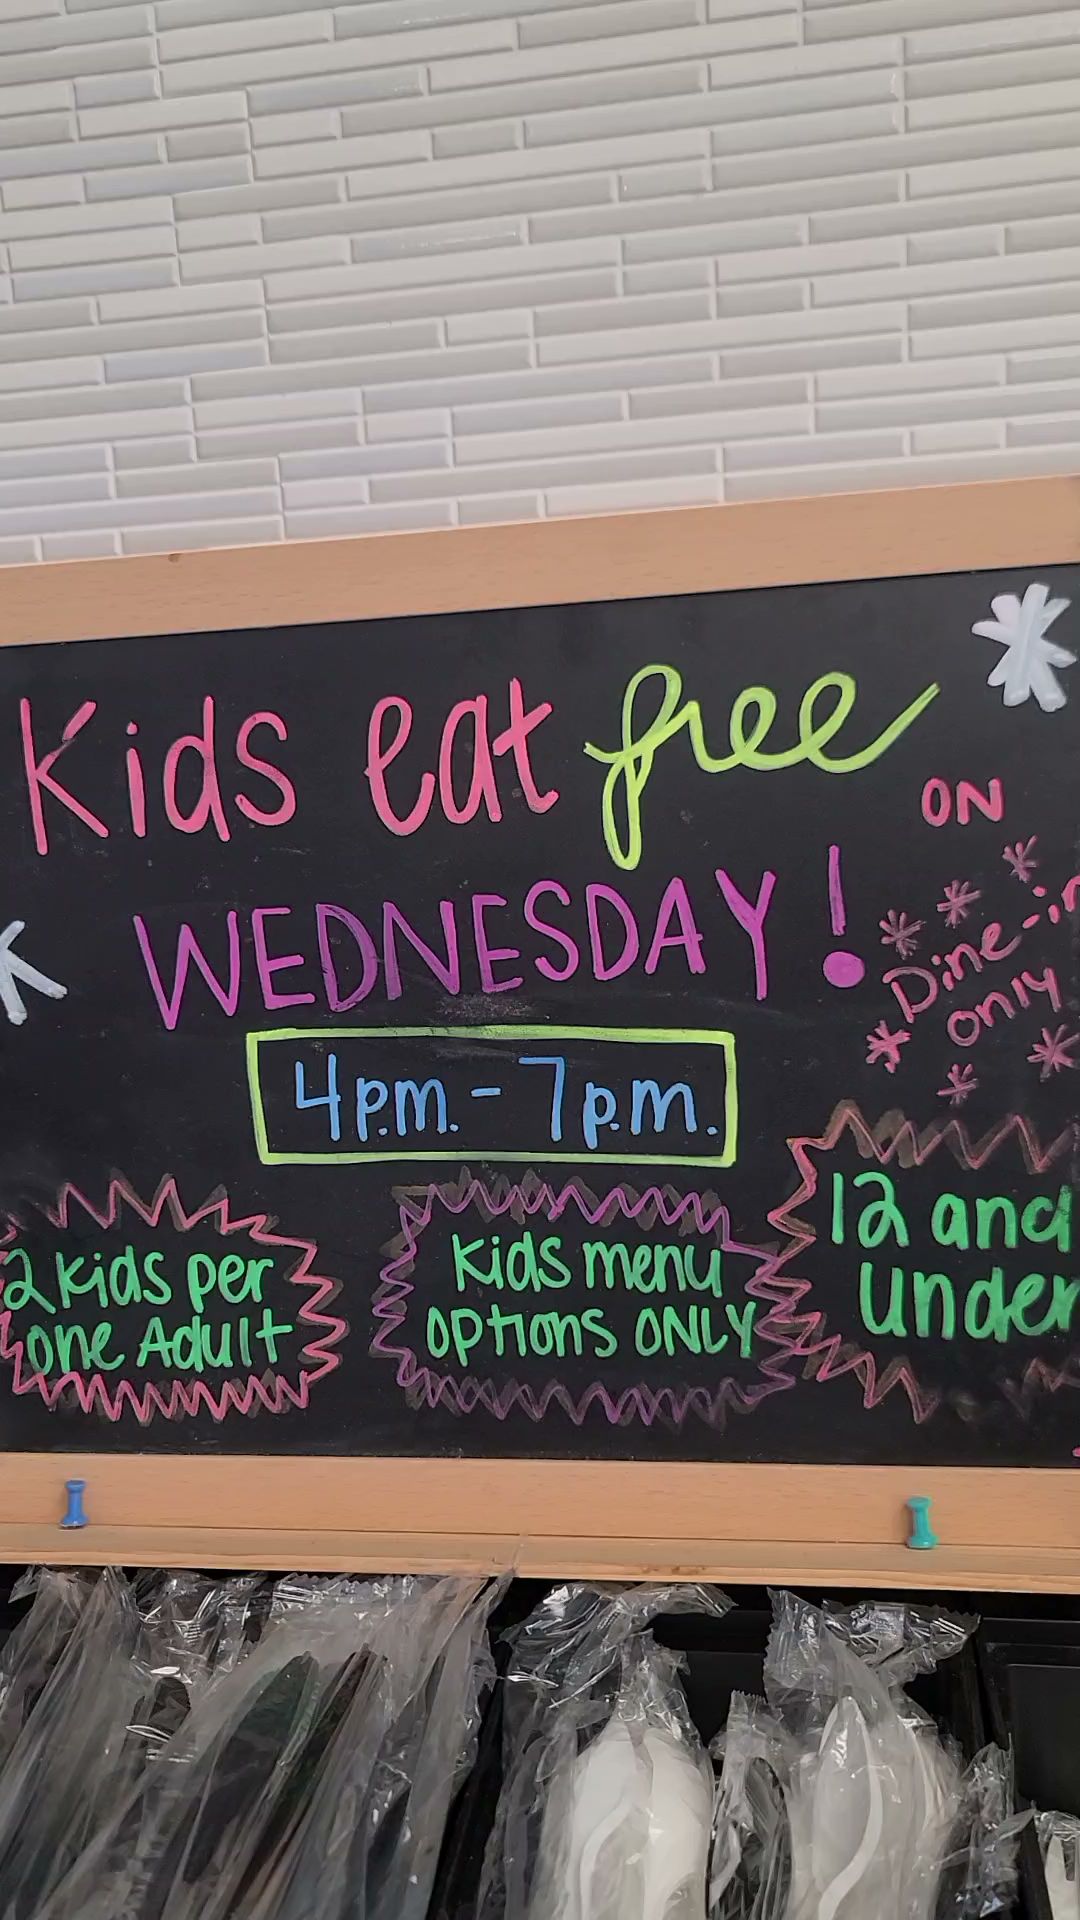 Kids eat free
ON
WEDNESDAY!
Dine-in
only
4p.m. - 7p.m.
2 kids per
one Adult
Kids menu
options ONLY
12 and
under